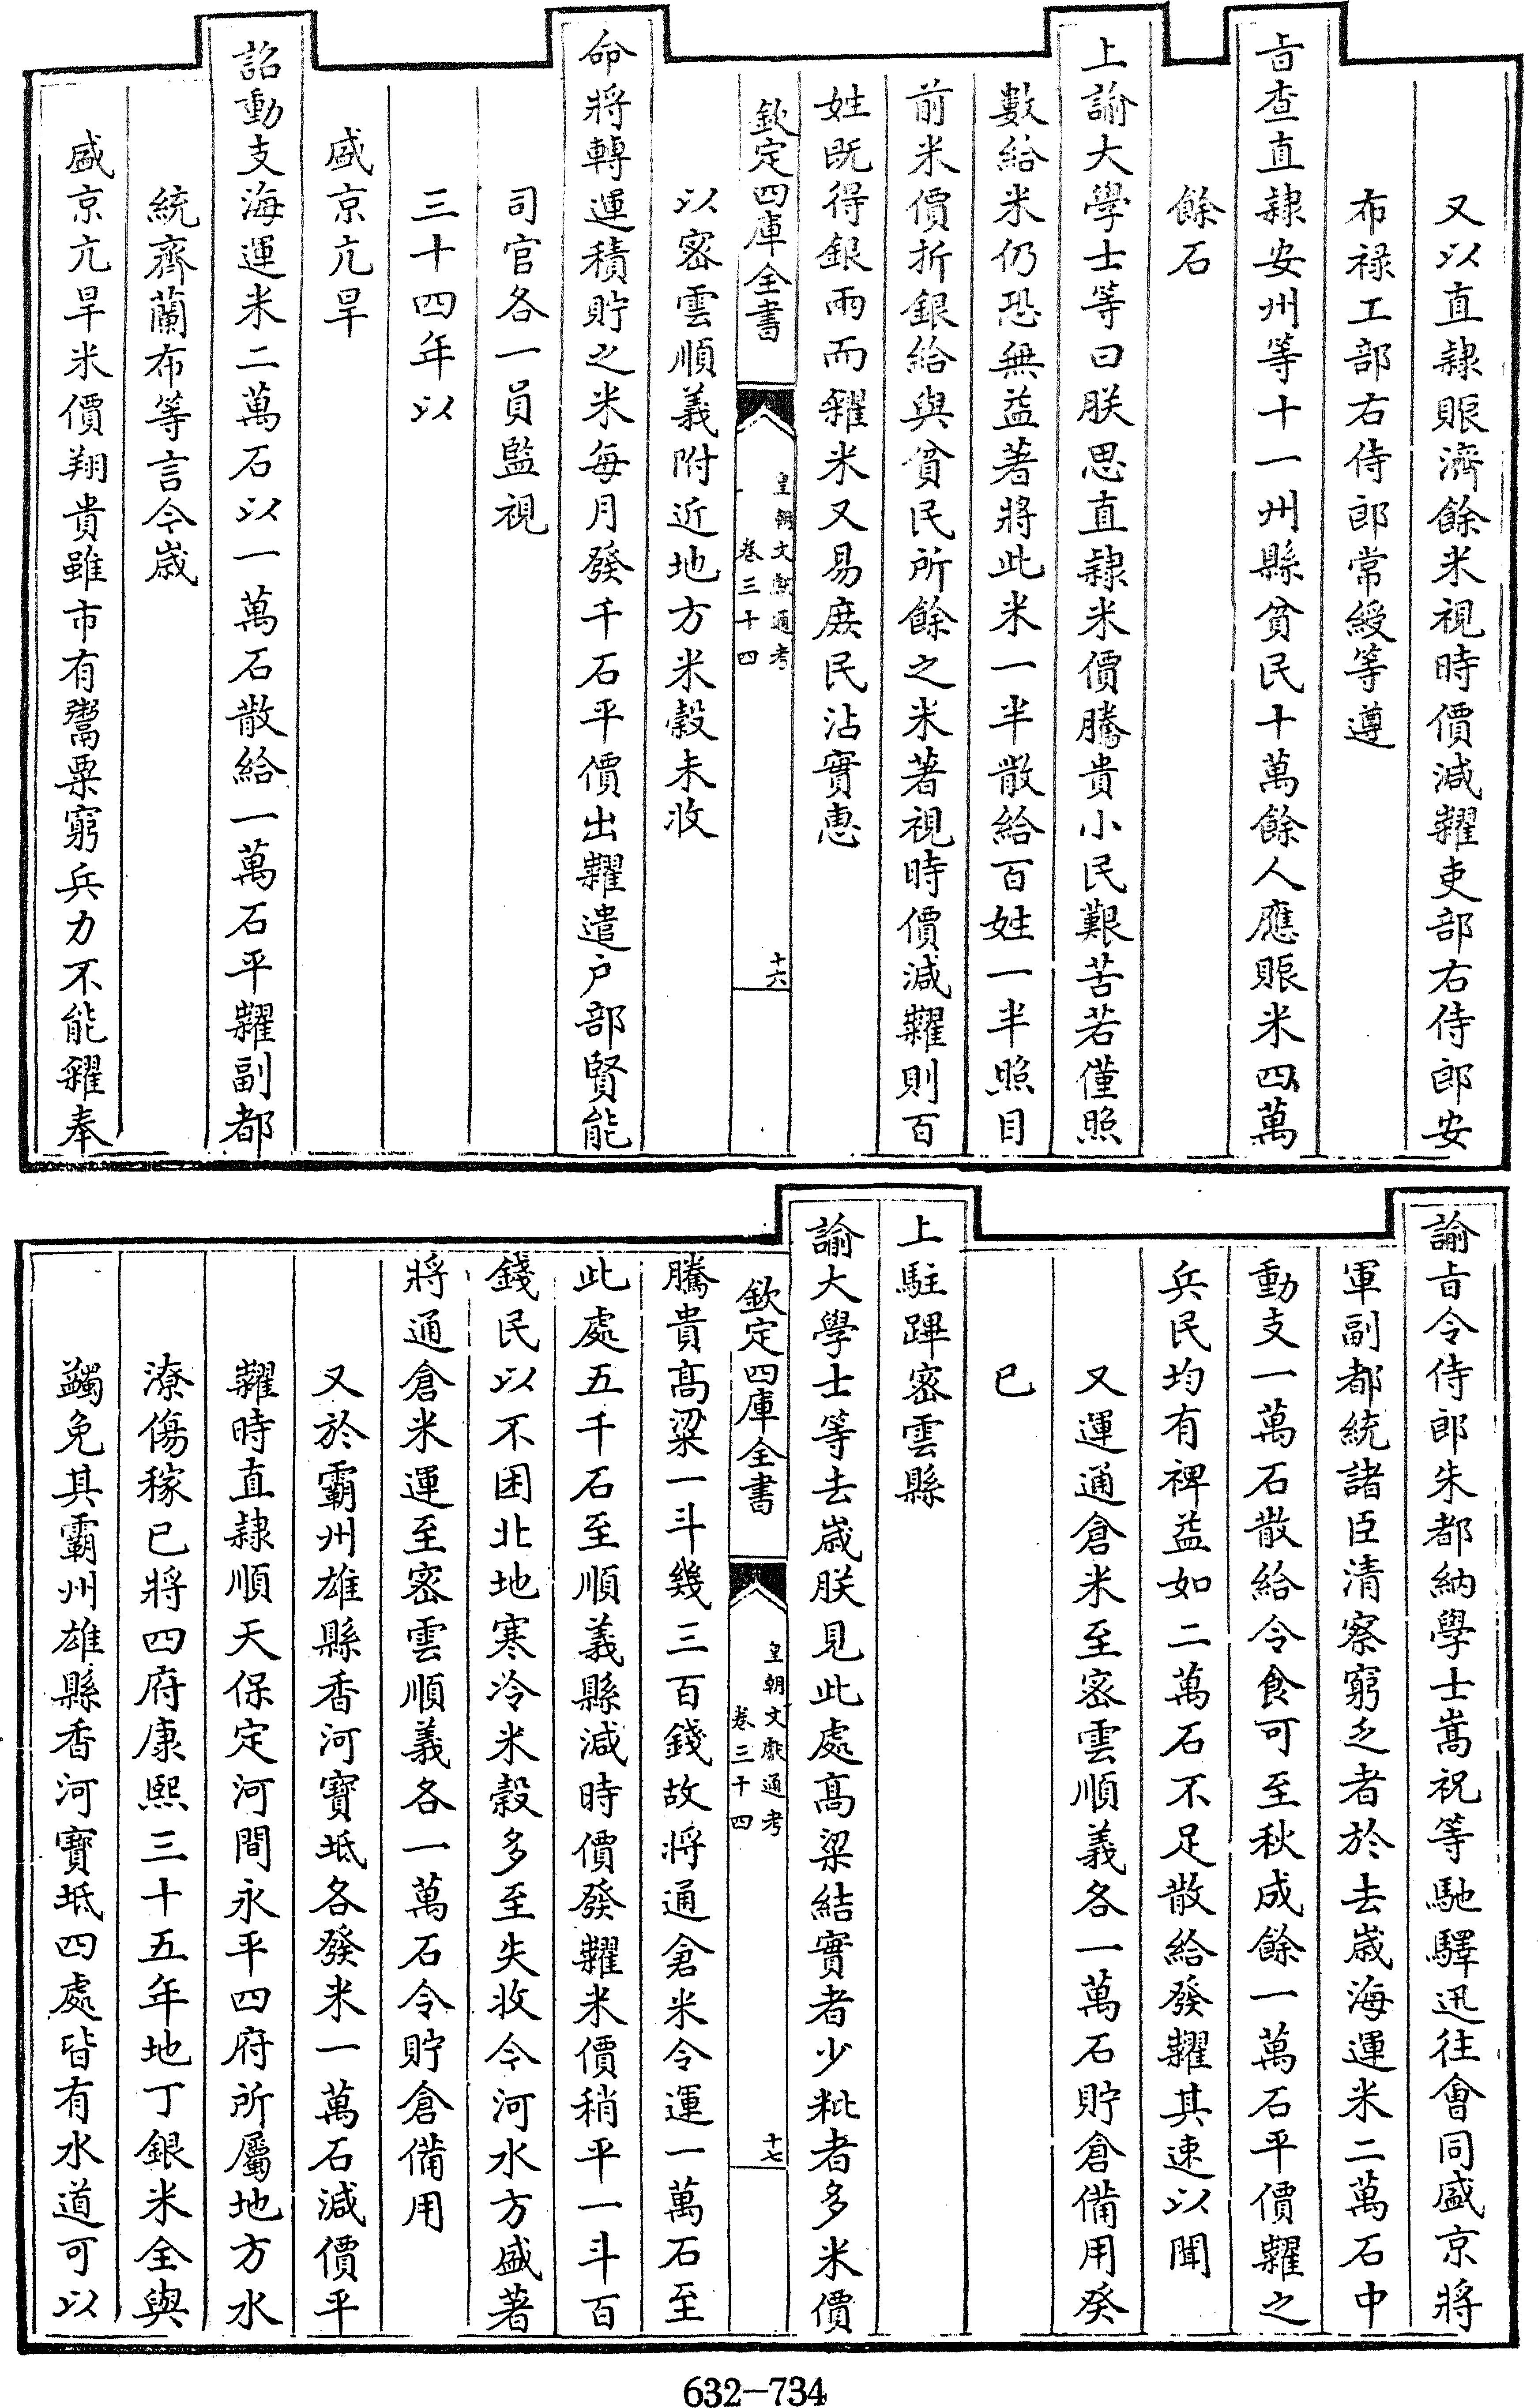 又以直隷賑濟餘米視時價減糶吏部右侍郎安
布祿工部右侍郎常綬等遵
旨查直隷安州等十一州縣貧民十萬餘人應賑米四萬
餘石
上諭大學士等曰朕思直隷米價騰貴小民艱苦若僅照
數給米仍恐無益著將此米一半散給百姓一半照目
前米價折銀給與貧民所餘之米著視時價減糶則百
姓既得銀兩而糴米又易庻民沾實惠
欽定四庫全書
皇朝文獻通考
卷三十四
十六
以密雲順義附近地方米穀未收
命將轉運積貯之米每月發千石平價出糶遣户部賢能
司官各一員監視
三十四年以
盛京亢旱
詔動支海運米二萬石以一萬石散給一萬石平糶副都
統齊蘭布等言今歲
盛京亢旱米價翔貴雖市有鬻粟窮兵力不能糴奉
諭旨令侍郎朱都納學士嵩祝等馳驛迅往會同盛京將
軍副都統諸臣清察窮乏者於去歲海運米二萬石中
動支一萬石散給令食可至秋成餘一萬石平價糶之
兵民均有裨益如二萬石不足散給發糶其速以聞
又運通倉米至密雲順義各一萬石貯倉備用癸
巳
上駐蹕密雲縣
諭大學士等去歲朕見此處髙粱結實者少粃者多米價
欽定四庫全書
皇朝文獻通考
卷三十四
十七
騰貴髙粱一斗幾三百錢故將通倉米令運一萬石至
此處五千石至順義縣減時價發糶米價稍平一斗百
錢民以不困北地寒冷米穀多至失收今河水方盛著
將通倉米運至密雲順義各一萬石令貯倉備用
又於霸州雄縣香河寶坻各發米一萬石減價平
糶時直隷順天保定河間永平四府所屬地方水
潦傷稼已將四府康熙三十五年地丁銀米全與
蠲免其霸州雄縣香河寶坻四處皆有水道可以
632-734